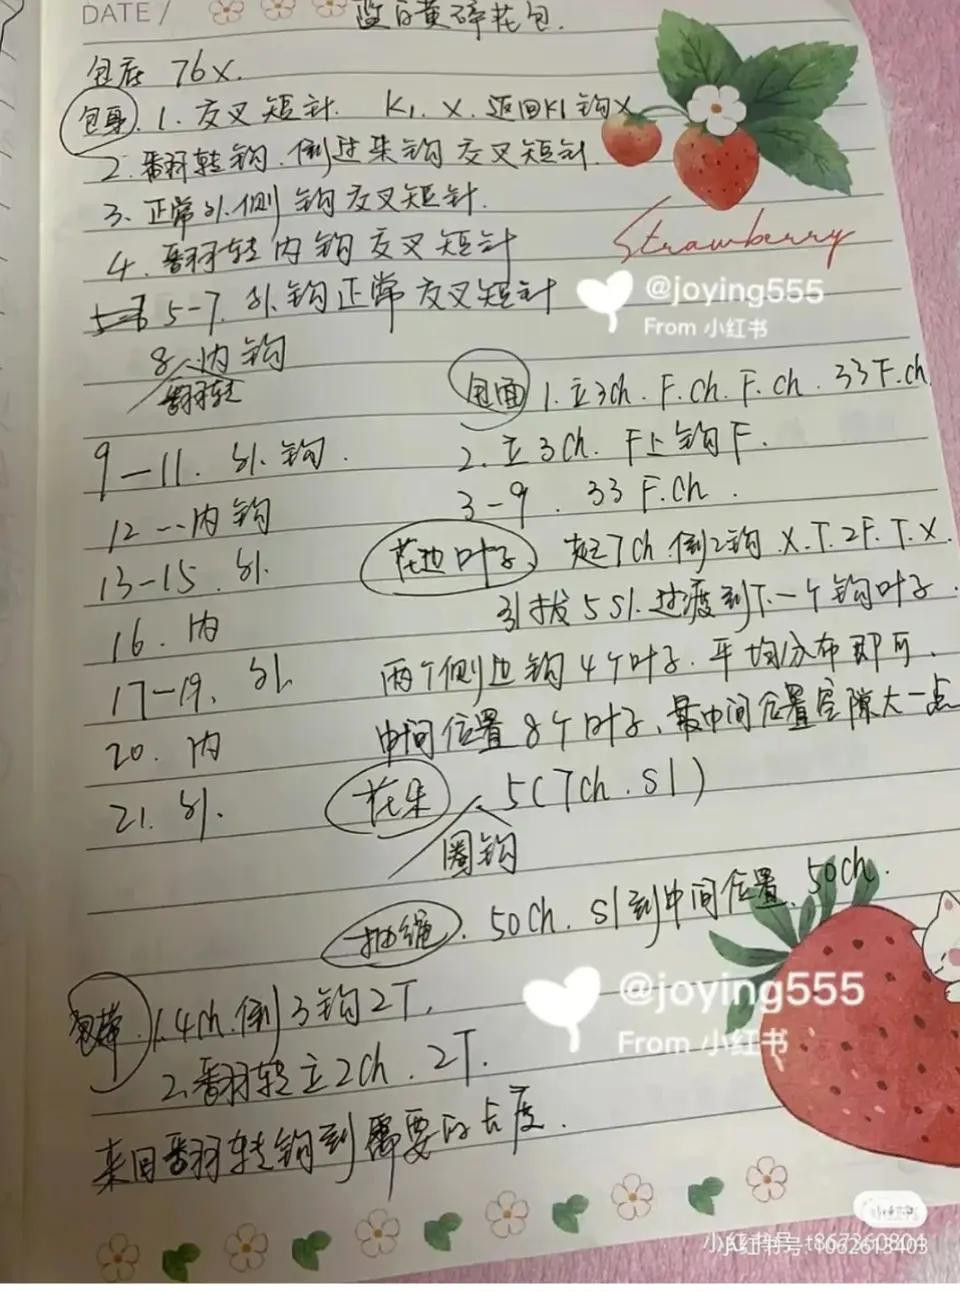 DATE /
蓝白黄碎花包.
包底 76X.
包身. 1. 交叉短针. K1. X. 返回K1钩X
2. 翻转钩. 倒过来钩交叉短针.
3. 正常外侧 钩交叉短针.
4. 翻转内钩交叉短针
5-7. 外钩正常交叉短针
8 内钩
翻转
9—11. 外钩.
12--内钩
13-15. 外.
16. 内
17-19. 外
20. 内
21. 外.
包面 1. 立3ch. F. ch. F. ch. 33 F. ch
2. 立3ch. F上钩F.
3-9. 33 F. ch.
花边叶子. 起7ch 倒2钩. X. T. 2F. T. X.
引拔5sl. 过渡到下一个钩叶子.
两个侧边钩4个叶子. 平均分布即可.
中间位置8个叶子, 最中间位置空隙大一点
花朵 5(7ch. sl)
圈钩
抽绳. 50ch. sl到中间位置. 50ch.
包带. 1. 4ch. 倒3钩2T.
2. 翻转立2ch. 2T.
来回翻转钩到需要的长度.
Strawberry
@joying555
From 小红书
@joying555
From 小红书